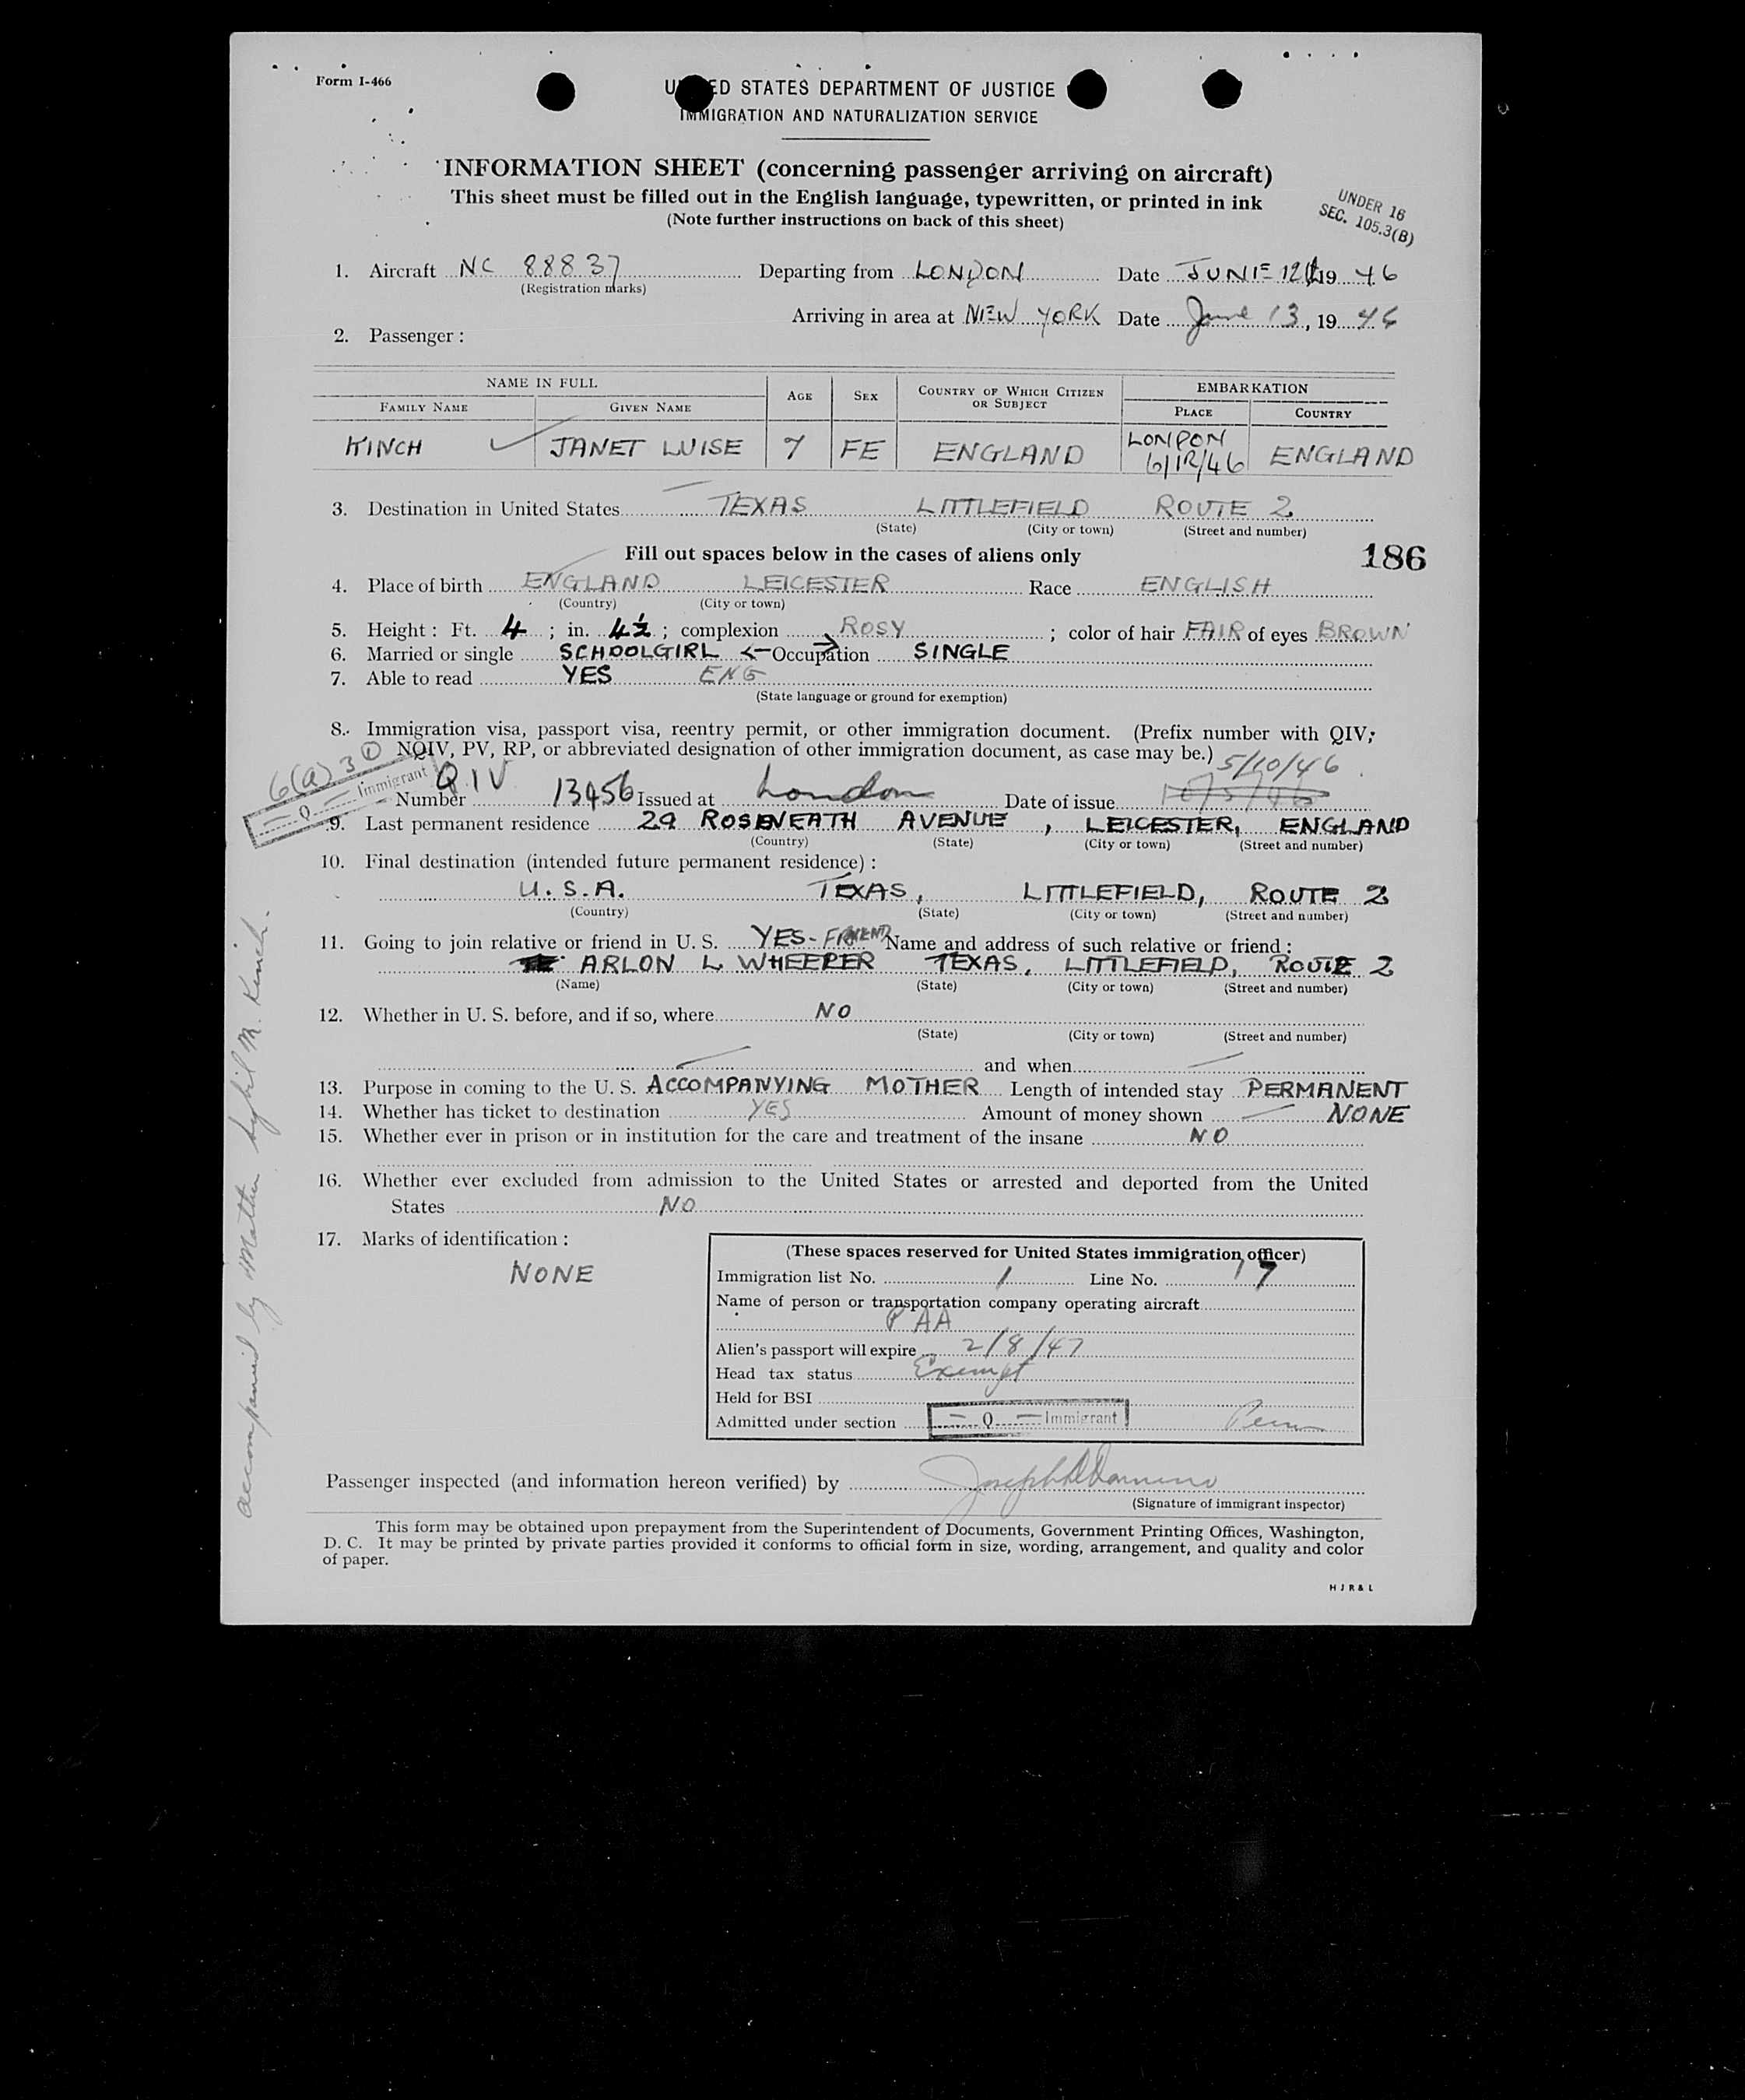 Form I-466
UNITED STATES DEPARTMENT OF JUSTICE
IMMIGRATION AND NATURALIZATION SERVICE
INFORMATION SHEET (concerning passenger arriving on aircraft)
This sheet must be filled out in the English language, typewritten, or printed in ink
(Note further instructions on back of this sheet)
UNDER 16
SEC. 105.3(B)
1. Aircraft NC 88837 Departing from LONDON Date JUNE 12th 1946
(Registration marks)
Arriving in area at NEW YORK Date June 13, 1946
2. Passenger:
NAME IN FULL AGE SEX COUNTRY OF WHICH CITIZEN OR SUBJECT EMBARKATION
FAMILY NAME GIVEN NAME PLACE COUNTRY
KINCH JANET LUISE 7 FE ENGLAND LONDON 6/12/46 ENGLAND
3. Destination in United States TEXAS LITTLEFIELD ROUTE 2
(State) (City or town) (Street and number)
Fill out spaces below in the cases of aliens only
186
4. Place of birth ENGLAND LEICESTER Race ENGLISH
(Country) (City or town)
5. Height: Ft. 4; in. 4½; complexion ROSY; color of hair FAIR of eyes BROWN
6. Married or single SCHOOLGIRL Occupation SINGLE
7. Able to read YES ENG
(State language or ground for exemption)
8. Immigration visa, passport visa, reentry permit, or other immigration document. (Prefix number with QIV,
NQIV, PV, RP, or abbreviated designation of other immigration document, as case may be.)
6(a)3 ①
Q Immigrant
5/10/46
Number QIV 13456 Issued at London Date of issue
9. Last permanent residence 29 ROSENEATH AVENUE, LEICESTER, ENGLAND
(Country) (State) (City or town) (Street and number)
10. Final destination (intended future permanent residence):
U.S.A. TEXAS, LITTLEFIELD, ROUTE 2
(Country) (State) (City or town) (Street and number)
11. Going to join relative or friend in U. S. YES - FRIEND Name and address of such relative or friend:
ARLON L WHEELER TEXAS, LITTLEFIELD, ROUTE 2
(Name) (State) (City or town) (Street and number)
12. Whether in U. S. before, and if so, where NO
(State) (City or town) (Street and number)
and when
13. Purpose in coming to the U. S. ACCOMPANYING MOTHER Length of intended stay PERMANENT
14. Whether has ticket to destination YES Amount of money shown NONE
15. Whether ever in prison or in institution for the care and treatment of the insane NO
16. Whether ever excluded from admission to the United States or arrested and deported from the United
States NO
17. Marks of identification:
NONE
(These spaces reserved for United States immigration officer)
Immigration list No. 1 Line No. 17
Name of person or transportation company operating aircraft
PAA
Alien's passport will expire 2/8/47
Head tax status Exempt
Held for BSI
Admitted under section Q Immigrant Perm
accompanied by Mother Sybil M. Kinch.
Passenger inspected (and information hereon verified) by
(Signature of immigrant inspector)
This form may be obtained upon prepayment from the Superintendent of Documents, Government Printing Offices, Washington,
D. C. It may be printed by private parties provided it conforms to official form in size, wording, arrangement, and quality and color
of paper.
HJR&L